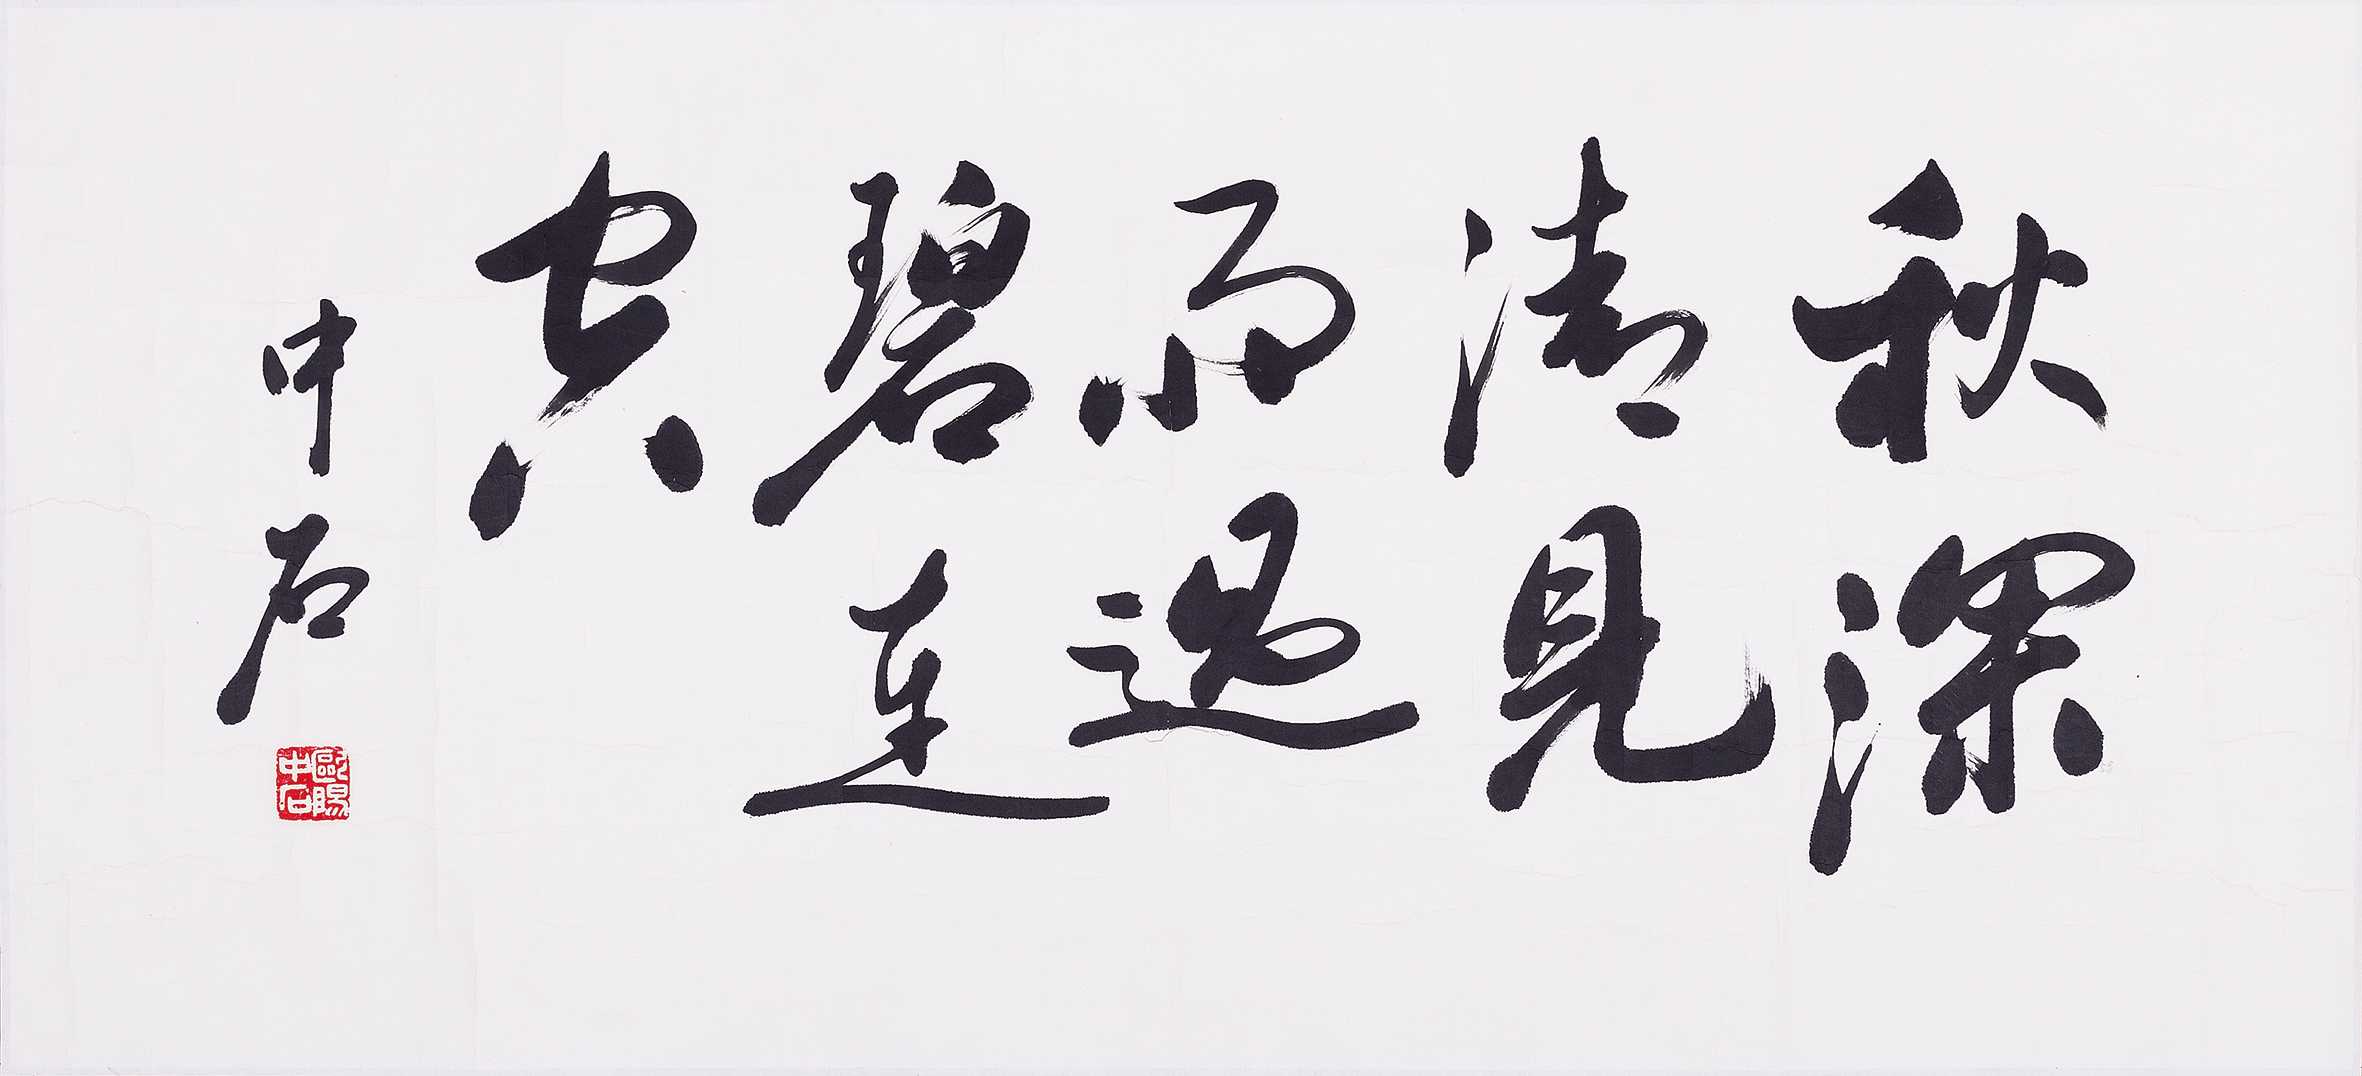 秋深
清見
雨過
碧連
空
中石
歐陽
中石